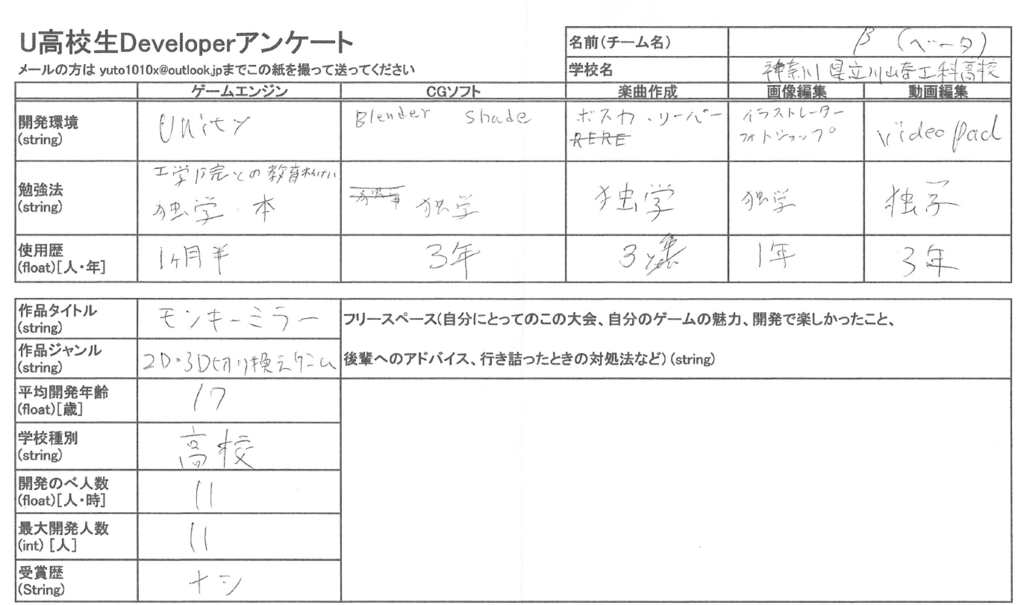 U高校生Developerアンケート
メールの方は yuto1010x@outlook.jpまでこの紙を撮って送ってください
名前(チーム名) β (ベータ)
学校名 神奈川県立川崎工科高校
ゲームエンジン CGソフト 楽曲作成 画像編集 動画編集
開発環境
(string)
Unity
Blender Shade
ボスカ・リーパー
イラストレーター
フォトショップ
VideoPad
勉強法
(string)
工学院との教育
独学・本
独学
独学
独学
独学
使用歴
(float)[人・年]
1ヶ月半
3年
3
1年
3年
作品タイトル
(string)
モンキーミラー
作品ジャンル
(string)
2D・3D切り換えゲーム
平均開発年齢
(float)[歳]
17
学校種別
(string)
高校
開発のべ人数
(float)[人・時]
11
最大開発人数
(int) [人]
11
受賞歴
(String)
ナシ
フリースペース(自分にとってのこの大会、自分のゲームの魅力、開発で楽しかったこと、
後輩へのアドバイス、行き詰ったときの対処法など) (string)